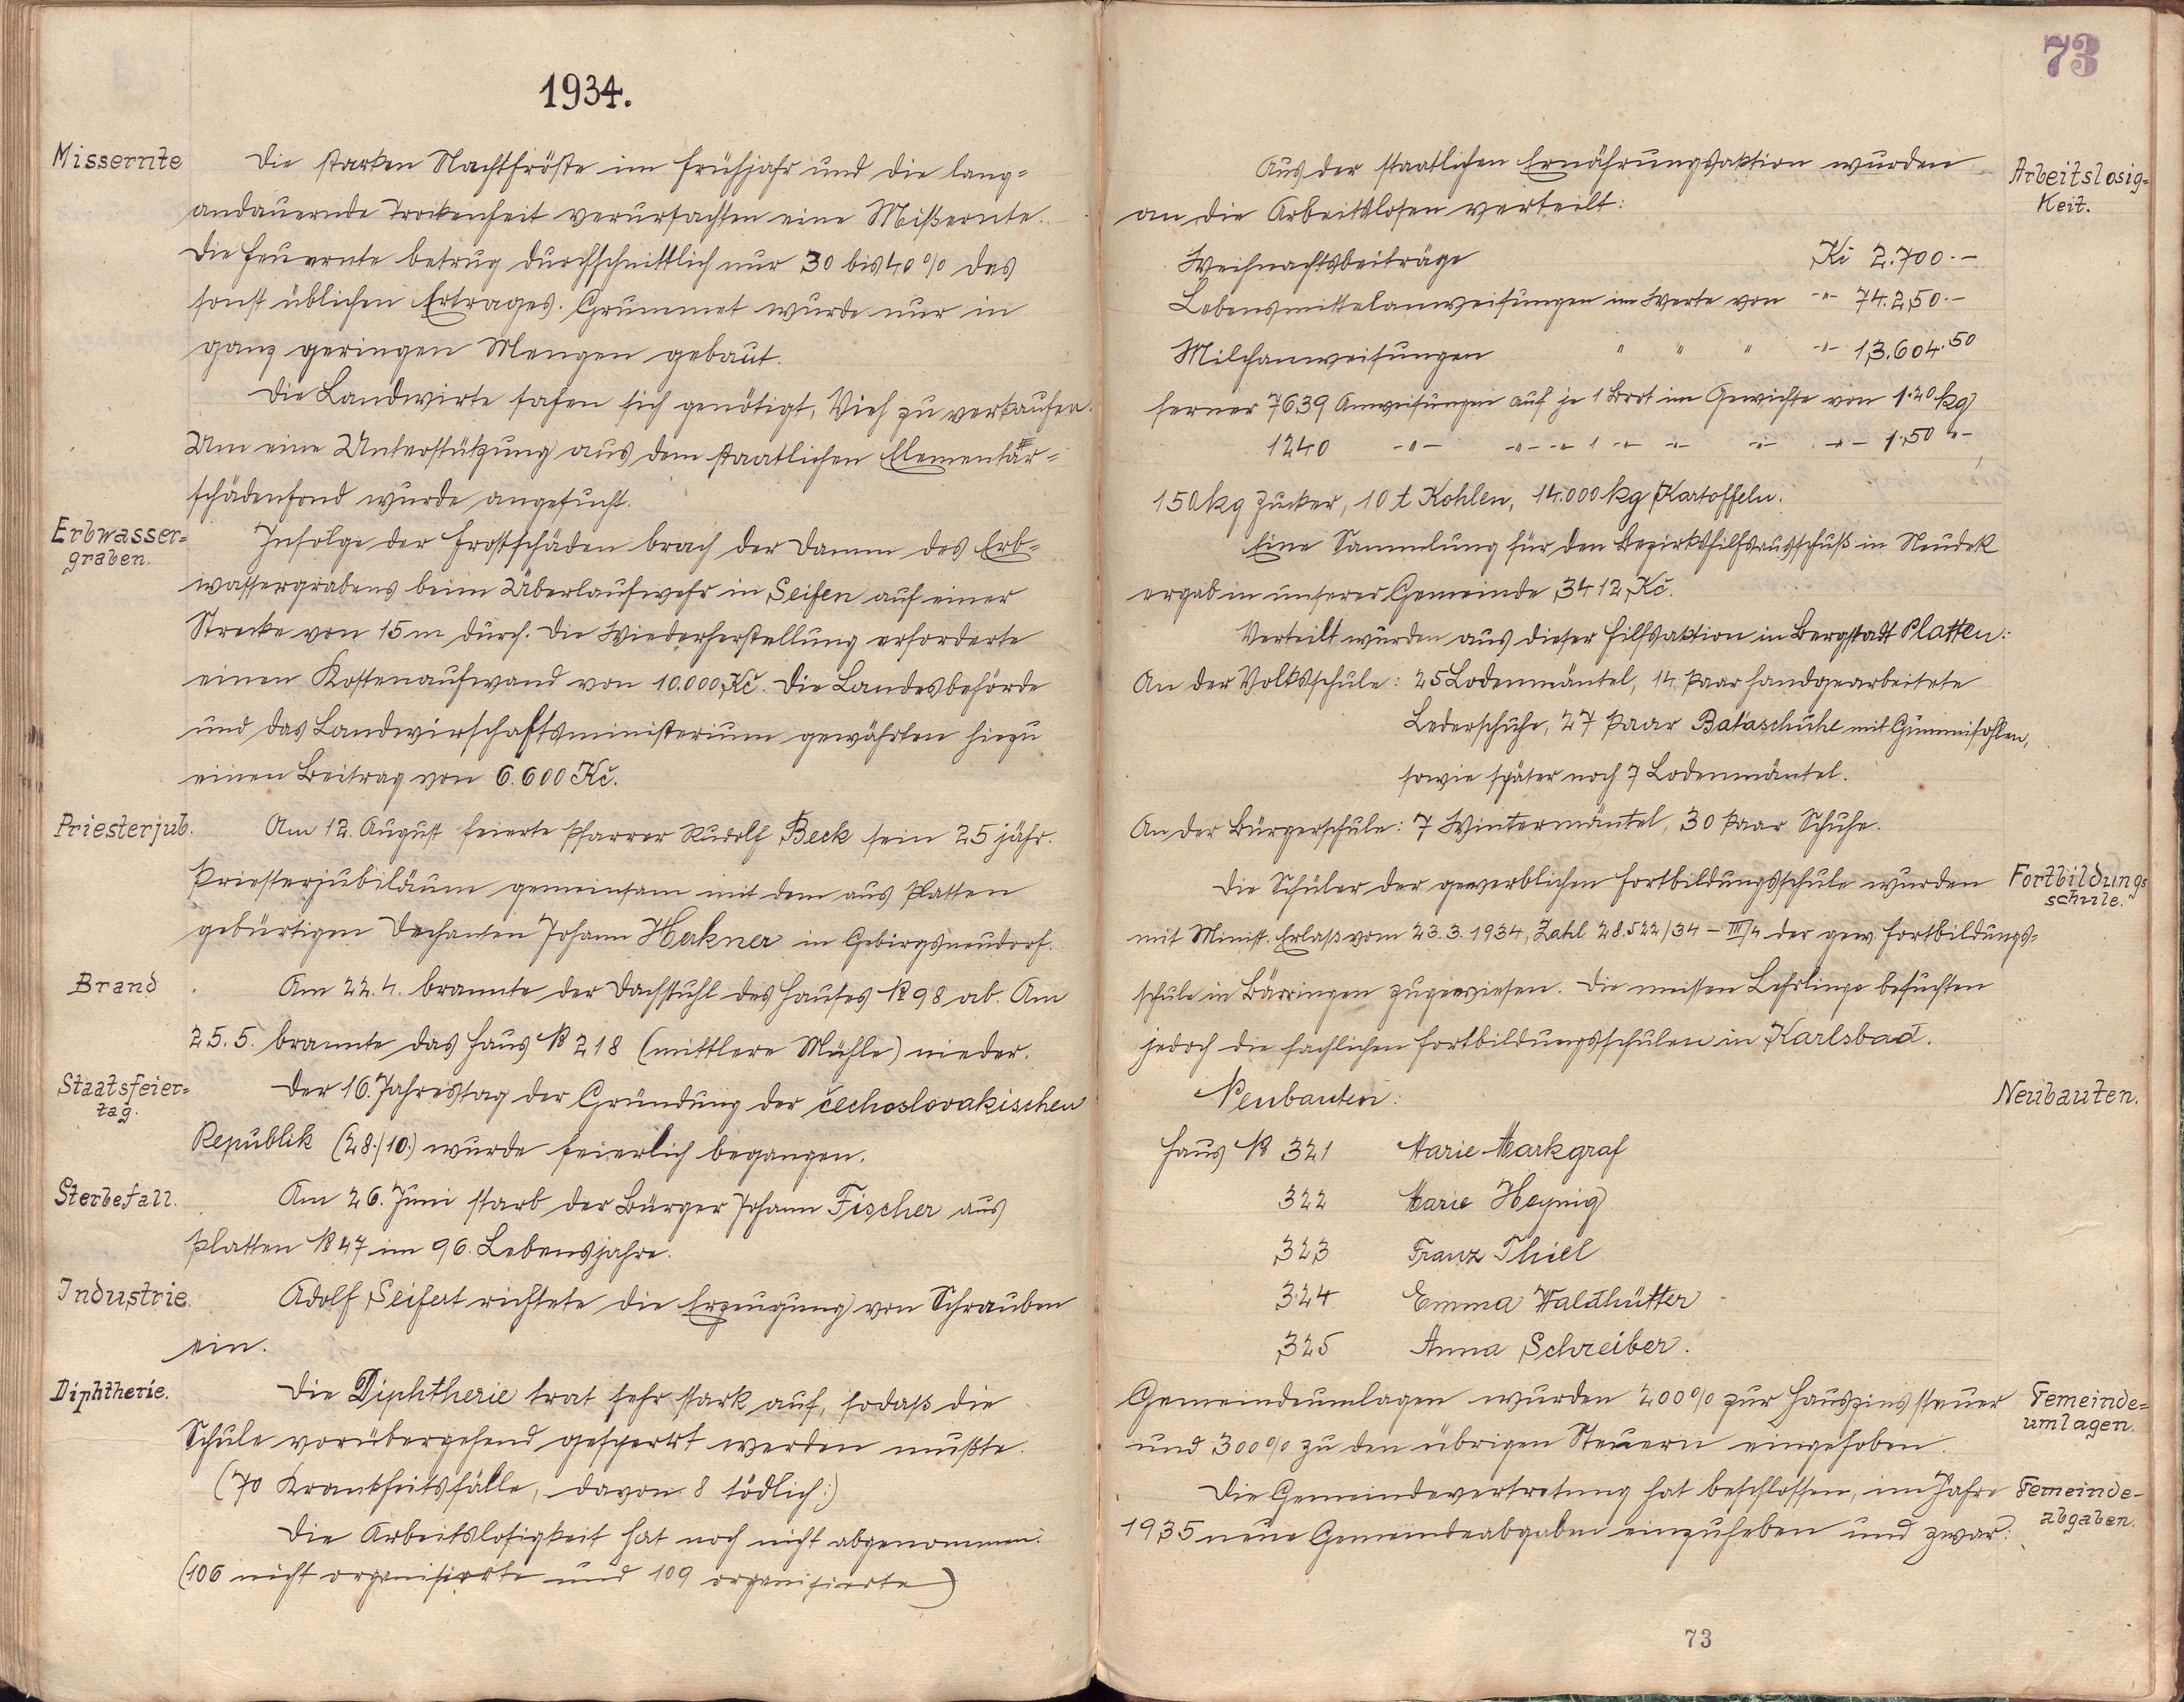 1934.
Missernte
Die starken Nachtfröste im Frühjahr und die lang=
andauernde Trockenheit verursachten eine Mißernte.
Die Heuernte betrug durchschnittlich nur 30 bis 40% des
sonst üblichen Ertrages. Grummet wurde nur in
ganz geringen Mengen gebaut.
Die Landwirte sahen sich genötigt, Vieh zu verkaufen.
Um eine Unterstützung aus dem staatlichen Elementar=
schädenfond wurde angesucht.
Erbwasser=
graben.
Infolge der Frostschäden brach der Damm des Erb=
wassergrabens beim Überlaufwehr in Seifen auf einer
Strecke von 15 m durch. Die Wiederherstellung erforderte
einen Kostenaufwand von 10.000 Kč. Die Landesbehörde
und das Landwirschaftsministerium gewährten hiezu
einen Beitrag von 6.600 Kč.
Priesterjub.
Am 12. August feierte Pfarrer Rudolf Beck sein 25 jähr.
Priesterjubiläum gemeinsam mit dem aus Platten
gebürtigen Dechanten Johann Herkner in Gebirgsneudorf.
Brand
Am 22.4. brannte der Dachstuhl des Hauses № 98 ab. Am
25.5. brannte das Haus № 218 (mittlere Mühle) nieder.
Staatsfeier=
tag.
Der 16. Jahrestag der Gründung der čechoslovakischen
Republik (28./10.) wurde feierlich begangen.
Sterbefall.
Am 26. Juni starb der Bürger Johann Fischer aus
Platten № 47 im 96. Lebensjahre.
Industrie.
Adolf Seifert richtete die Erzeugung von Schrauben
ein.
Diphtherie.
Die Diphtherie trat sehr stark auf, sodaß die
Schule vorübergehend gesperrt werden mußte.
(70 Krankheitsfälle, davon 8 tödlich:)
Die Arbeitslosigkeit hat noch nicht abgenommen.
(106 nicht organisierte und 109 organisierte)
73
Arbeitslosig=
keit.
Aus der staatlichen Ernährungsaktion wurden
an die Arbeitslosen verteilt:
Weihnachtsbeiträge Kč 2.700.-
Lebensmittelanweisungen im Werte von -"- 74.250.-
Milchanweisungen " " " -"- 13.604.50
ferner 7639 Anweisungen auf je 1 Brot im Gewichte von 1.20 kg
1240 -"- -"- -"- 1 -"- -"- -"- -"- 1.50 "-,
150 kg Zucker, 10 t Kohlen, 14.000 kg Kartoffeln.
Eine Sammlung für den Bezirkshilfsausschuß in Neudek
ergab in unserer Gemeinde 3412 Kč.
Verteilt wurden aus dieser Hilfsaktion in Bergstadt Platten:
An der Volksschule: 25 Lodenmäntel, 14 Paar handgearbeitete
Lederschuhe, 27 Paar Bataschuhe mit Gummisohlen,
sowie später noch 7 Lodenmäntel.
An der Bürgerschule: 7 Wintermäntel, 30 Paar Schuhe.
Fortbildungs
schule.
Die Schüler der gewerblichen Fortbildungsschule wurden
mit Minist. Erlaß vom 23.3.1934, Zahl 28.522/34 - III/4 der gew. Fortbildungs=
schule in Bärringen zugewiesen. Die meisten Lehrlinge besuchten
jedoch die fachlichen Fortbildungsschulen in Karlsbad.
Neubauten.
Neubauten:
Haus № 321 Marie Markgraf
322 Marie Heynig
323 Franz Thiel
324 Emma Waldhütter
325 Anna Schreiber.
Gemeinde=
umlagen.
Gemeindeumlagen wurden 200% zur Hauszinssteuer
und 300% zu den übrigen Steuern eingehoben.
Gemeinde-
abgaben.
Die Gemeindevertretung hat beschlossen, im Jahre
1935 neue Gemeindeabgaben einzuheben und zwar:
73